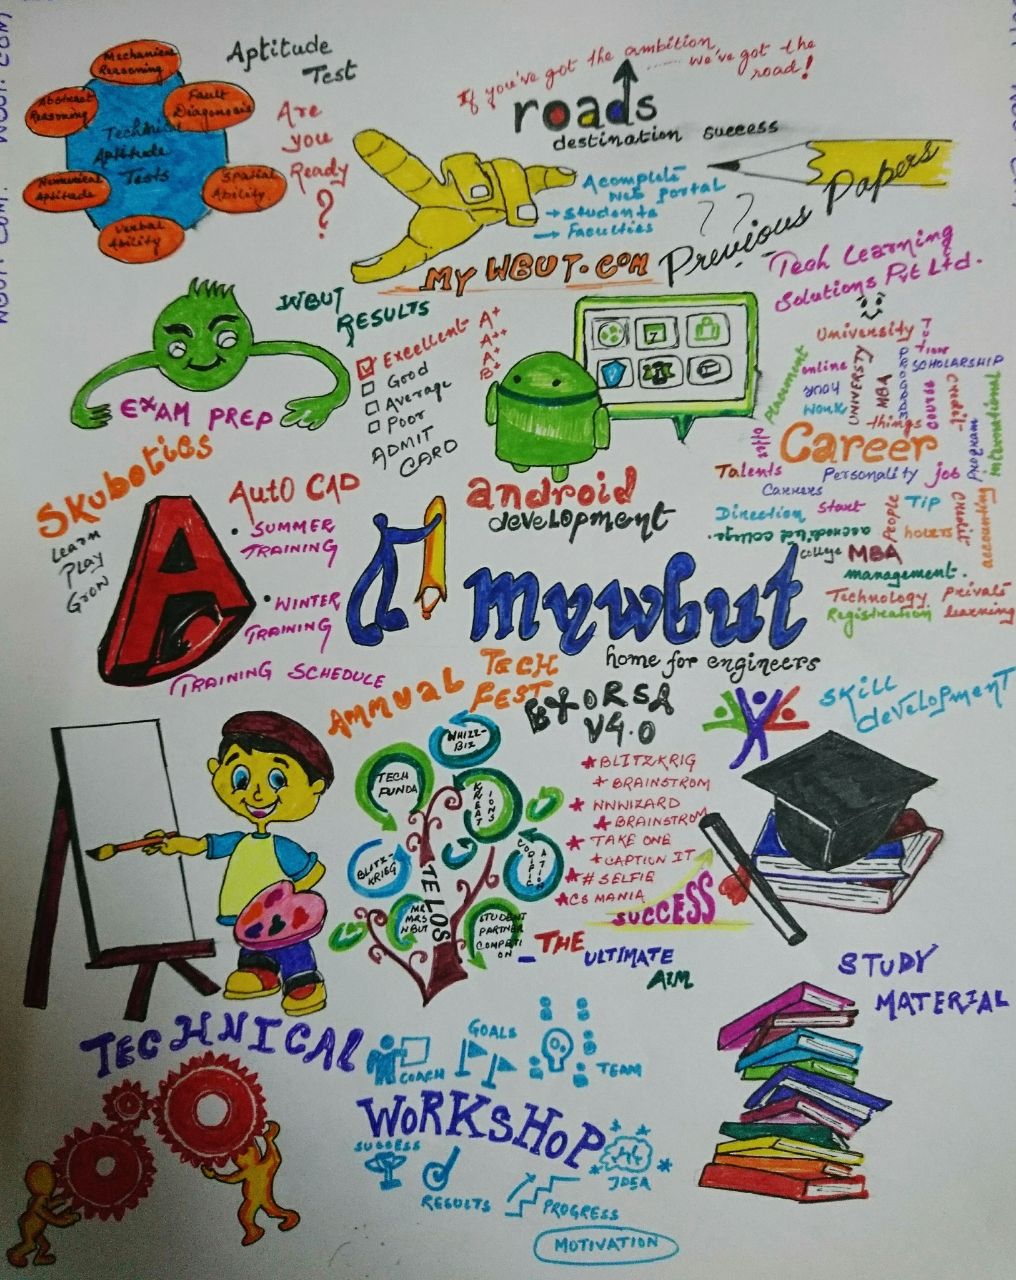 Aptitude
Test
Are
you
Ready
?
Mechanical
Reasoning
Abstract
Reasoning
Fault
Diagnosis
Technical
Aptitude
Tests
Numerical
Aptitude
Spatial
Ability
Verbal
Ability
If you've got the ambition,
...... we've got the
road!
roads
destination success
A complete
web portal
→ Students
→ Faculties
MY WBUT.COM
Previous Papers
Tech Learning
Solutions Pvt Ltd.
WBUT
RESULTS
EXAM PREP
Excellent
Good
Average
Poor
A+
A++
A+
B+
ADMIT
CARD
7
android
development
University
online
your
work
placement
offer
UNIVERSITY
MBA
SCHOLARSHIP
course
credit
international
things
Career
Program
Talents
Personality
job
Careers
Direction
Start
People
Tip
credit
accounting
accredited college
college
MBA
management.
Technology
private
Registration
learning
Skubotics
Learn
Play
Grow
AutO CAD
• SUMMER
TRAINING
• WINTER
TRAINING
TRAINING SCHEDULE
A
mywbut
home for engineers
AMMUAL TECH
FEST
BYORSA
V4.0
SKILL
development
TECH
FUNDA
WHIZZ-
BIZ
KREAT
IONS
BLITZ-
KRIEG
CODIFIC
ATION
MR
MRS
WBUT
STUDENT
PARTNER
COMPETI
ON
TELOS
★BLITZKRIG
★BRAINSTROM
★ WNWIZARD
★BRAINSTROM
★ TAKE ONE
★CAPTION IT
★#SELFIE
★CS MANIA
SUCCESS
_THE
ULTIMATE
AIM
STUDY
MATERIAL
TECHNICAL
WORKSHOP
COACH
GOALS
TEAM
SUCCESS
RESULTS
PROGRESS
IDEA
MOTIVATION